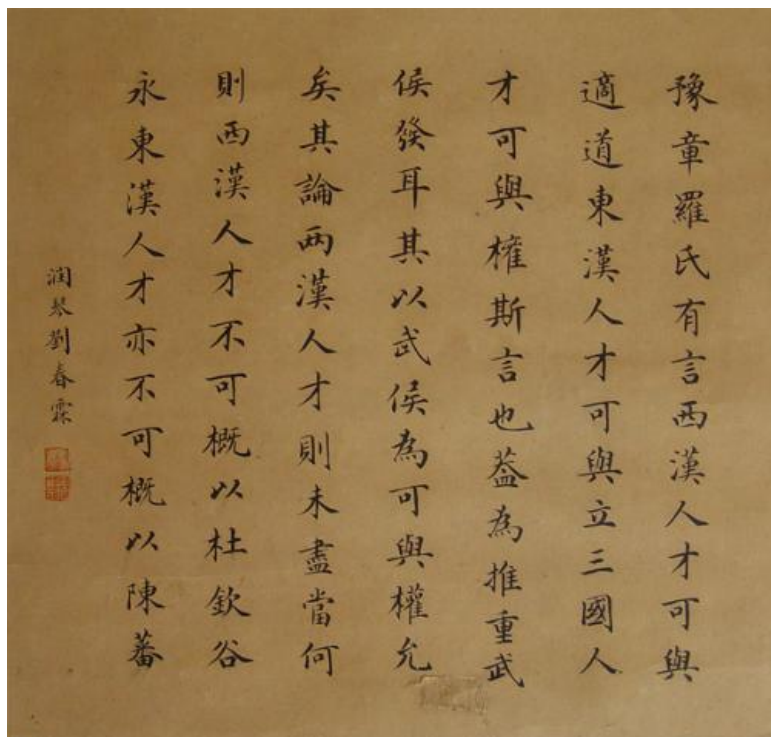 豫章羅氏有言西漢人才可與
適道東漢人才可與立三國人
才可與權斯言也葢為推重武
侯發耳其以武侯為可與權允
矣其論两漢人才則未盡當何
則西漢人才不可概以杜欽谷
永東漢人才亦不可概以陳蕃
润琴劉春霖